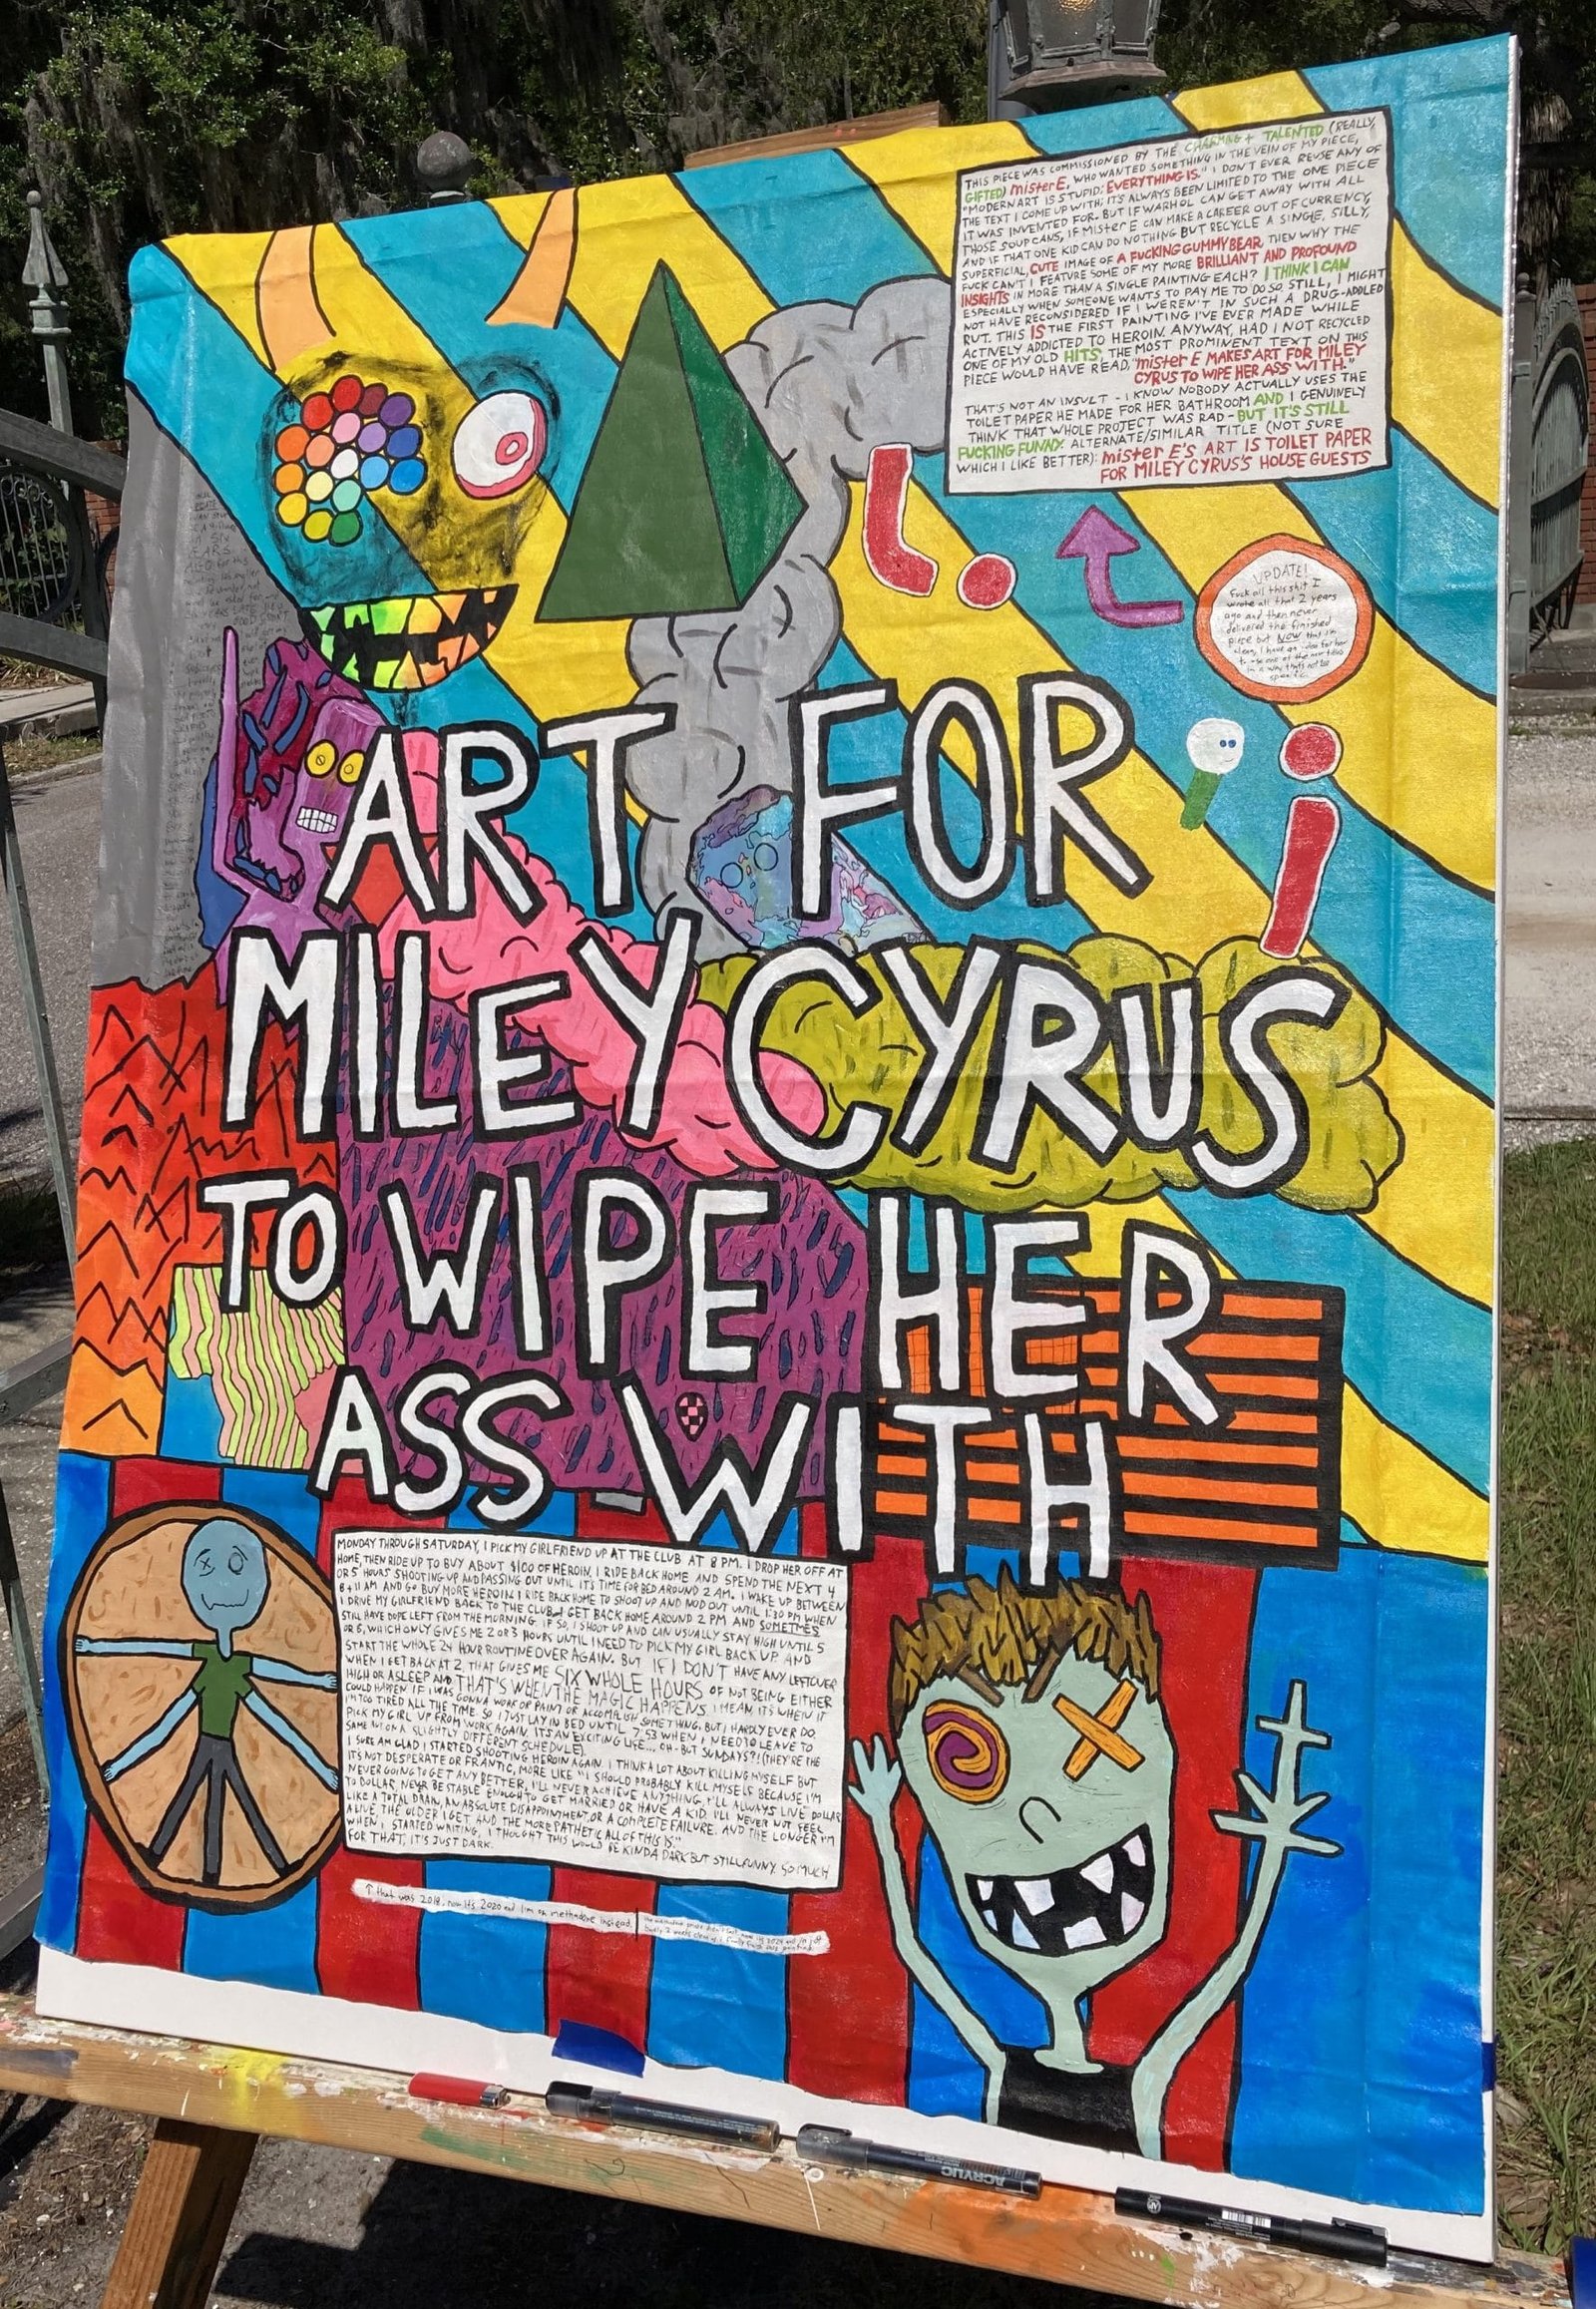 THIS PIECE WAS COMMISSIONED BY THE CHARMING + TALENTED (REALLY,
GIFTED) mister E, WHO WANTED SOMETHING IN THE VEIN OF MY PIECE,
"MODERN ART IS STUPID; EVERYTHING IS." I DON'T EVER REUSE ANY OF
THE TEXT I COME UP WITH; IT'S ALWAYS BEEN LIMITED TO THE ONE PIECE
IT WAS INVENTED FOR. BUT IF WARHOL CAN GET AWAY WITH ALL
THOSE SOUP CANS, IF MisterE CAN MAKE A CAREER OUT OF CURRENCY,
AND IF THAT ONE KID CAN DO NOTHING BUT RECYCLE A SINGLE, SILLY,
SUPERFICIAL, CUTE IMAGE OF A FUCKING GUMMY BEAR, THEN WHY THE
FUCK CAN'T I FEATURE SOME OF MY MORE BRILLIANT AND PROFOUND
INSIGHTS IN MORE THAN A SINGLE PAINTING EACH? I THINK I CAN
ESPECIALLY WHEN SOMEONE WANTS TO PAY ME TO DO SO. STILL, I MIGHT
NOT HAVE RECONSIDERED IF I WEREN'T IN SUCH A DRUG-ADDLED
RUT. THIS IS THE FIRST PAINTING I'VE EVER MADE WHILE
ACTIVELY ADDICTED TO HEROIN. ANYWAY, HAD I NOT RECYCLED
ONE OF MY OLD HITS, THE MOST PROMINENT TEXT ON THIS
PIECE WOULD HAVE READ, "mister E MAKES ART FOR MILEY
CYRUS TO WIPE HER ASS WITH."
THAT'S NOT AN INSULT - I KNOW NOBODY ACTUALLY USES THE
TOILET PAPER HE MADE FOR HER BATHROOM AND I GENUINELY
THINK THAT WHOLE PROJECT WAS RAD - BUT IT'S STILL
FUCKING FUNNY. ALTERNATE/SIMILAR TITLE (NOT SURE
WHICH I LIKE BETTER): mister E'S ART IS TOILET PAPER
FOR MILEY CYRUS'S HOUSE GUESTS
UPDATE!
Fuck all this shit. I
wrote all that 2 years
ago and then never
delivered the finished
piece but NOW that I'm
clean, I have an idea for how
to use one of the new titles
in a way that's not too
specific.
SIX
YEARS
AGO for this
ART FOR
MILEY CYRUS
TO WIPE HER
ASS WITH
MONDAY THROUGH SATURDAY, I PICK MY GIRLFRIEND UP AT THE CLUB AT 8 PM. I DROP HER OFF AT
HOME, THEN RIDE UP TO BUY ABOUT $100 OF HEROIN. I RIDE BACK HOME AND SPEND THE NEXT 4
OR 5 HOURS SHOOTING UP AND PASSING OUT UNTIL IT'S TIME FOR BED AROUND 2 AM. I WAKE UP BETWEEN
8 + 11 AM AND GO BUY MORE HEROIN. I RIDE BACK HOME TO SHOOT UP AND NOD OUT UNTIL 1:30 PM WHEN
I DRIVE MY GIRLFRIEND BACK TO THE CLUB. I GET BACK HOME AROUND 2 PM AND SOMETIMES
STILL HAVE DOPE LEFT FROM THE MORNING. IF SO, I SHOOT UP AND CAN USUALLY STAY HIGH UNTIL 5
OR 6, WHICH ONLY GIVES ME 2 OR 3 HOURS UNTIL I NEED TO PICK MY GIRL BACK UP AND
START THE WHOLE 24 HOUR ROUTINE OVER AGAIN. BUT IF I DON'T HAVE ANY LEFTOVER
WHEN I GET BACK AT 2, THAT GIVES ME SIX WHOLE HOURS OF NOT BEING EITHER
HIGH OR ASLEEP AND THAT'S WHEN THE MAGIC HAPPENS. I MEAN, IT'S WHEN IT
COULD HAPPEN IF I WAS GONNA WORK OR PAINT OR ACCOMPLISH SOMETHING, BUT I HARDLY EVER DO.
I'M TOO TIRED ALL THE TIME. SO I JUST LAY IN BED UNTIL 7:53 WHEN I NEED TO LEAVE TO
PICK MY GIRL UP FROM WORK AGAIN. IT'S AN EXCITING LIFE... OH - BUT SUNDAYS?! (THEY'RE THE
SAME BUT ON A SLIGHTLY DIFFERENT SCHEDULE).
I SURE AM GLAD I STARTED SHOOTING HEROIN AGAIN. I THINK A LOT ABOUT KILLING MYSELF BUT
IT'S NOT DESPERATE OR FRANTIC, MORE LIKE "I SHOULD PROBABLY KILL MYSELF BECAUSE I'M
NEVER GOING TO GET ANY BETTER, I'LL NEVER ACHIEVE ANYTHING, I'LL ALWAYS LIVE DOLLAR
TO DOLLAR, NEVER BE STABLE ENOUGH TO GET MARRIED OR HAVE A KID. I'LL NEVER NOT FEEL
LIKE A TOTAL DRAIN, AN ABSOLUTE DISAPPOINTMENT, OR A COMPLETE FAILURE. AND THE LONGER I'M
ALIVE, THE OLDER I GET AND THE MORE PATHETIC ALL OF THIS IS."
WHEN I STARTED WRITING, I THOUGHT THIS WOULD BE KINDA DARK BUT STILL FUNNY. SO MUCH
FOR THAT, IT'S JUST DARK.
↑ that was 2018, now it's 2020 and I'm on methadone instead.
now it's 2024 and I'm not
ACRYLIC